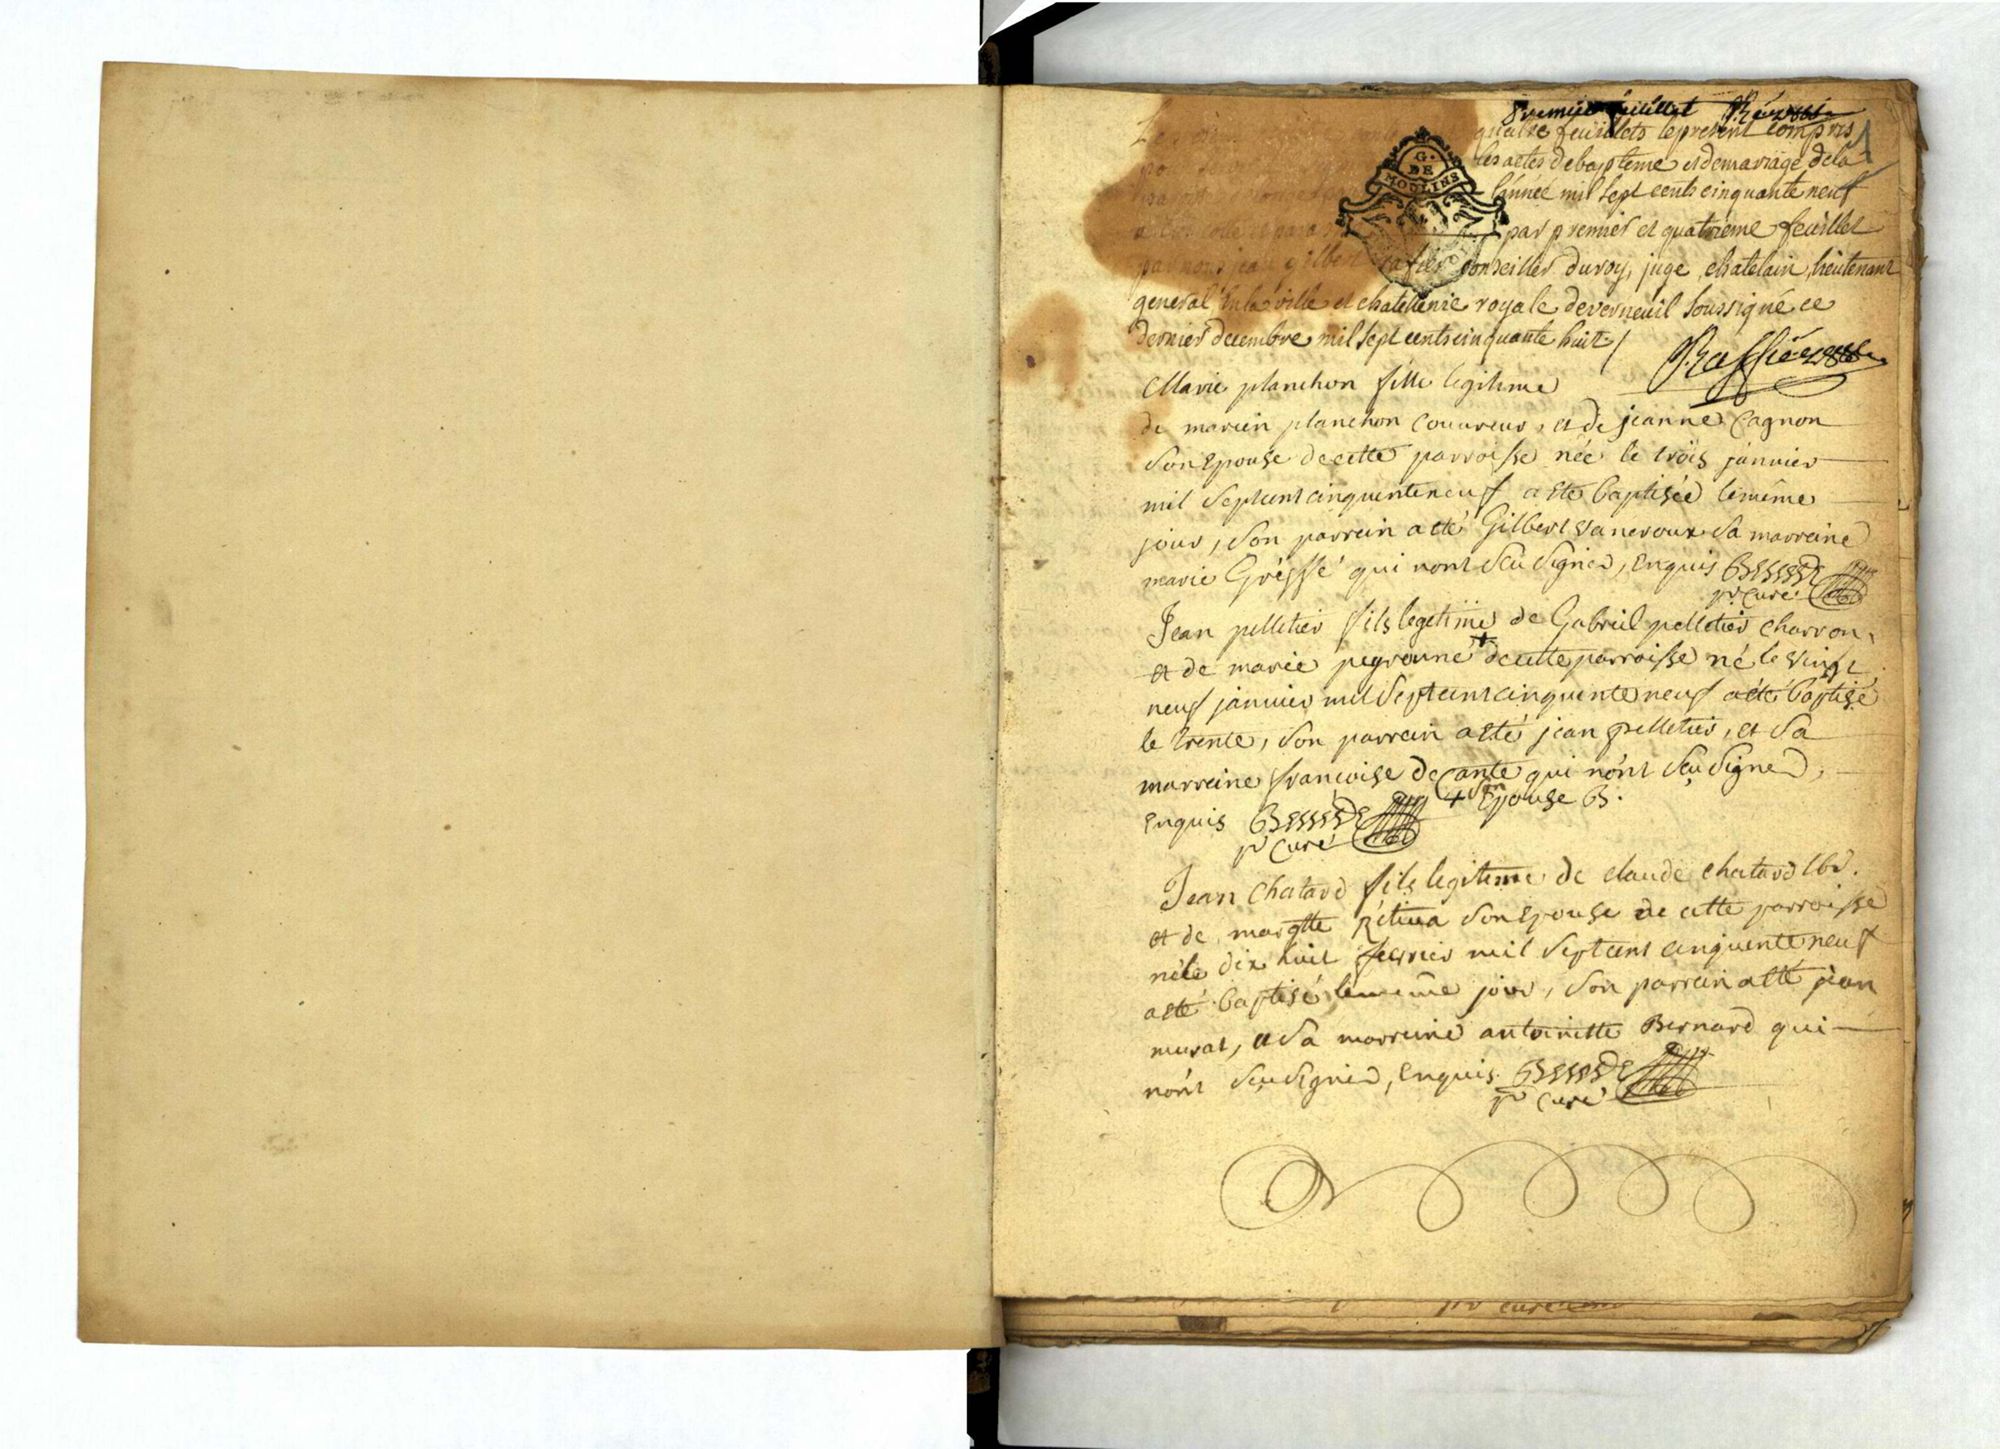 premier feuillet
1
quatre feuillets le present compris
les actes de bapteme et de mariage de la
G.
DE
MOULINS
l'année mil sept cents cinquante neuf
par premier et quatrieme feuillet
par nous jean gilbert conseiller du roy, juge, chatelain, lieutenant
general en la ville et chatellenie royale de verneuil soussigné ce
dernier decembre mil sept cents cinquante huit /
Marie planchon fille legitime
de marien planchon couureur, et de jeanne Cagnon
son Epouse de cette parroisse née le trois januier
mil septcent cinquente neuf a esté baptisée le même
jour, son parrein a esté Gilbert sa marreine
marie qui n'ont sçu signer, Enquis
pr Curé
Jean pelletier fils legitime de Gabriel pelletier charron,
et de marie pegrounne + de cette parroisse né le vingt
neuf januier mil septcent cinquente neuf a été baptisé
le trente, son parrein a esté jean pelletier, et sa
marreine françoise de qui n'ont sçu signer,
+ son Epouse B.
Enquis
pr Curé
Jean Chatard fils legitime de claude chatard lbr.
et de margtte son Epouse de cette parroisse
né le dix huit feurier mil septcent cinquente neuf
a esté baptisé le même jour, son parrein a esté jean
murat, et sa marreine antoinette Bernard qui
n'ont sçu signer, Enquis.
pr Curé